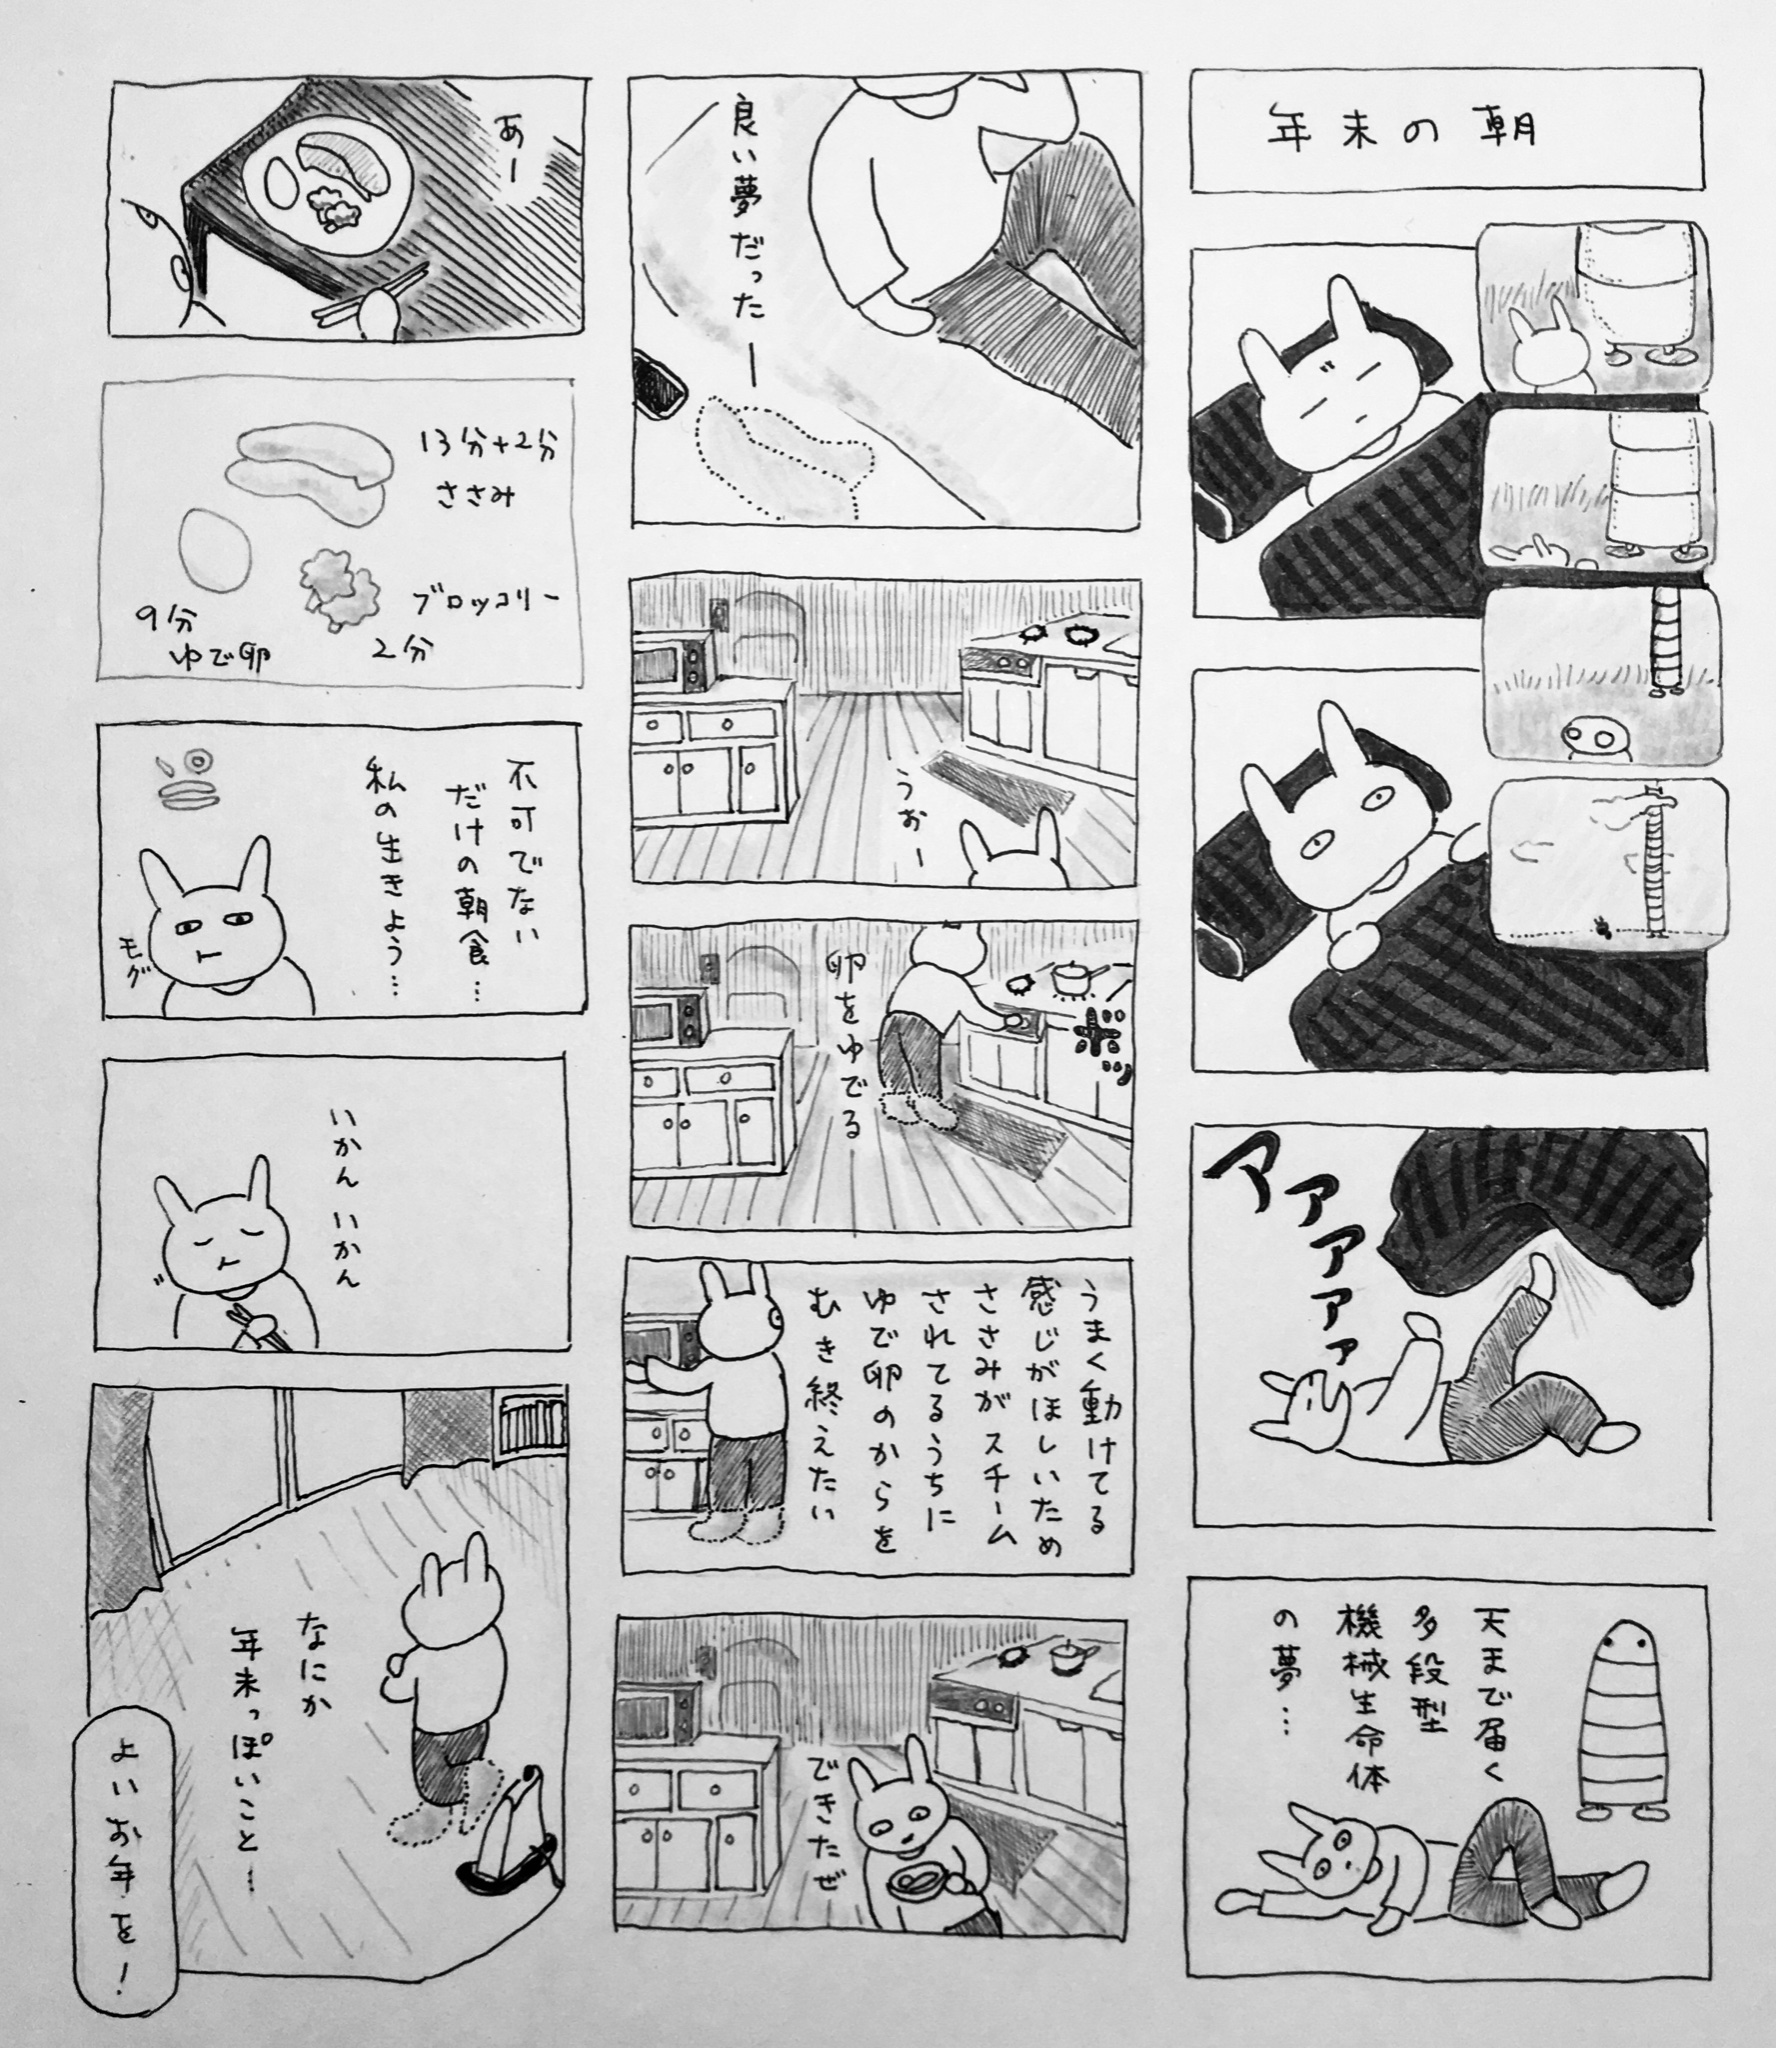 年末の朝
アアアアァァ
天まで届く
多段型
機械生命体
の夢…
良い夢だったー
うおー
卵をゆでる
うまく動けてる
感じがほしいため
ささみがスチーム
されてるうちに
ゆで卵のからを
むき終えたい
できたぜ
あー
13分+2分
ささみ
ブロッコリー
2分
9分
ゆで卵
不可でない
だけの朝食…
私の生きよう…
モグ
いかんいかん
なにか
年末っぽいこと…
よいお年を!